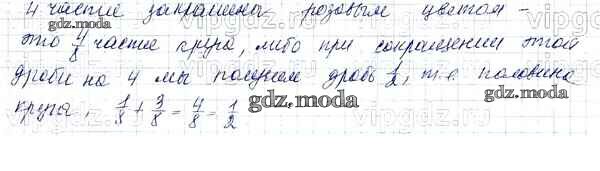 4 части закрашена розовым цветом -
это 4/8 части круга, либо при сокращении этой
дроби на 4 мы получаем дробь 1/2, т.е. половина
круга. 1/8 + 3/8 = 4/8 = 1/2
gdz.moda gdz.moda gdz.moda